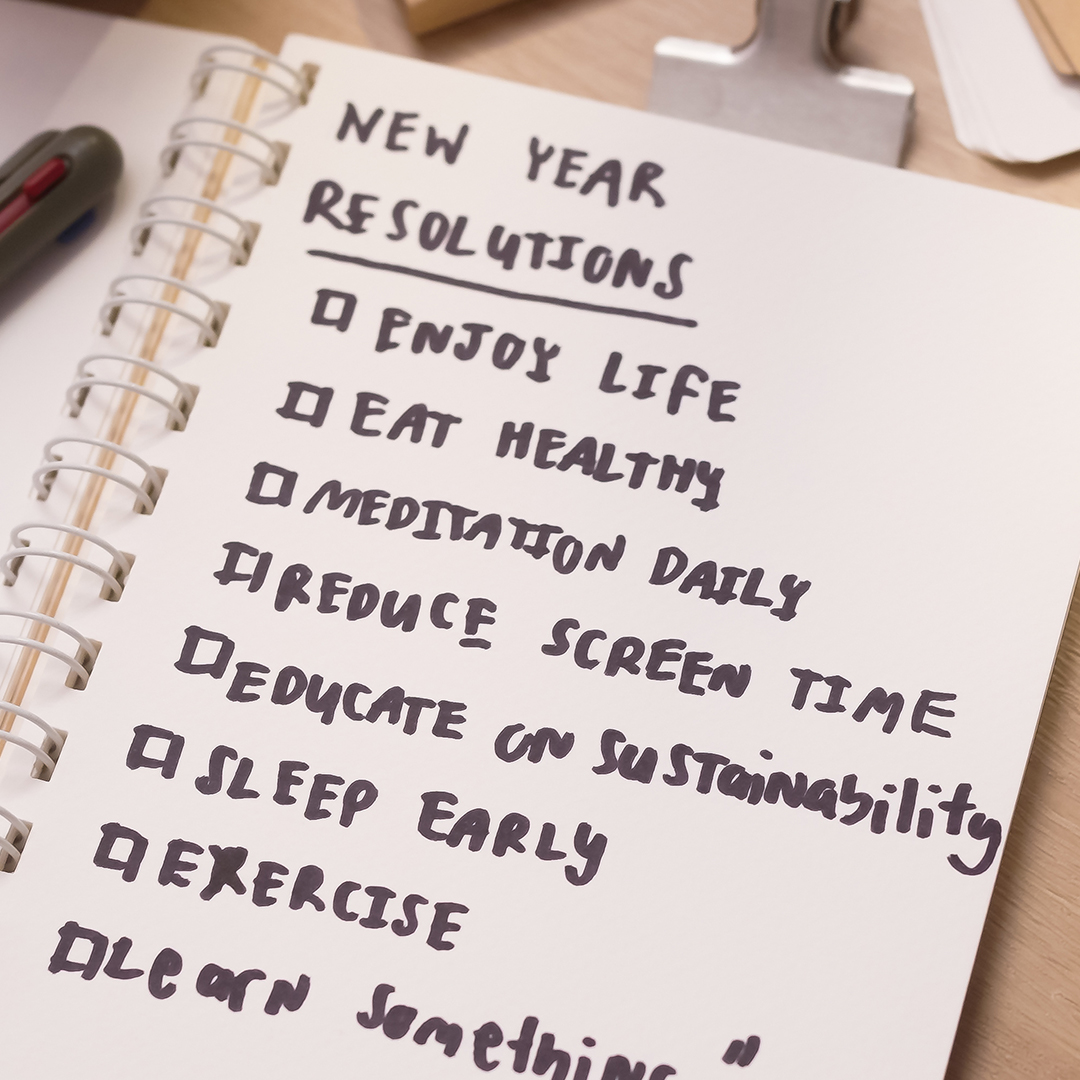 NEW YEAR
RESOLUTIONS
ENJOY LIFE
EAT HEALTHY
MEDITATION DAILY
REDUCE SCREEN TIME
EDUCATE ON SUSTainability
SLEEP EARLY
EXERCISE
Learn Something